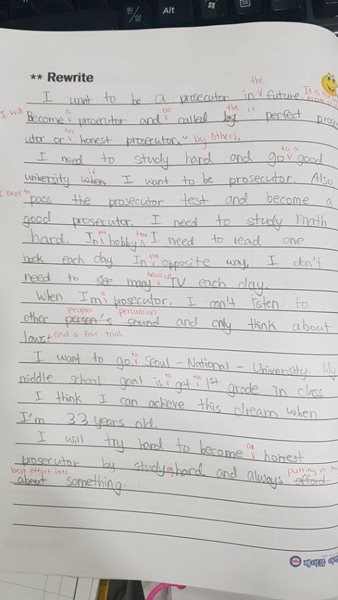 한/영
Alt
** Rewrite
the
I want to be a prosecutor in future. It is
I will Become a prosecutor and be called by the " perfect prosecutor
utor or an honest prosecutor." by others.
I need to study hard and go to a good
university when if I want to be prosecutor. Also
I need to pass the prosecutor test and become a
good prosecutor. I need to study math
hard. In my hobby time I need to read one
book each day. In the opposite way, I don't
need to see many hours of TV each day.
When I'm a prosecutor. I can't listen to
other person's people persuasion and only think about
laws and a fair trial.
I want to go to Seoul-National-University. My
middle school goal is to get the 1st grade in class
I think I can achieve this dream when
I'm 33 years old.
I will try hard to become an honest
prosecutor by studying hard and always putting in my
best effort into about something.